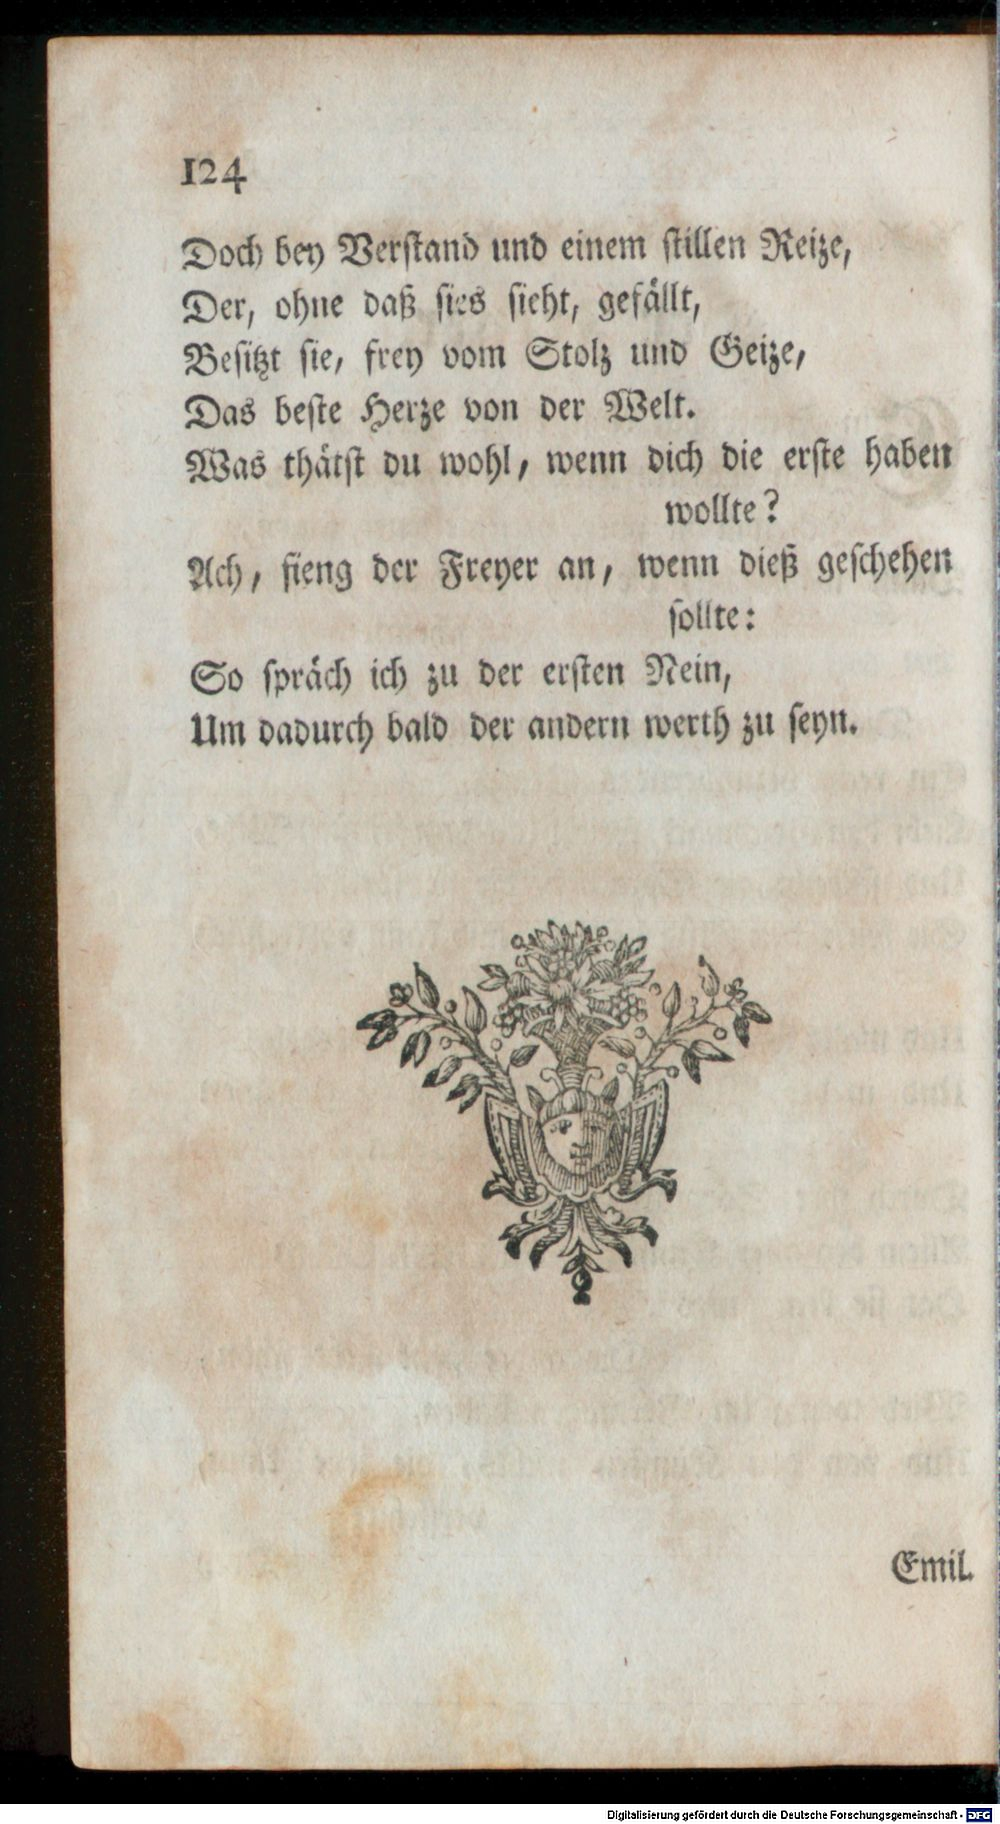 124
Doch bey Verſtand und einem ſtillen Reize,
Der, ohne daß ſies ſieht, gefällt,
Beſitzt ſie, frey vom Stolz und Geize,
Das beſte Herze von der Welt.
Was thätſt du wohl, wenn dich die erſte haben
wollte?
Ach, fieng der Freyer an, wenn dieß geſchehen
ſollte:
So ſpräch ich zu der erſten Nein,
Um dadurch bald der andern werth zu ſeyn.
Emil.
Digitalisierung gefördert durch die Deutsche Forschungsgemeinschaft - DFG